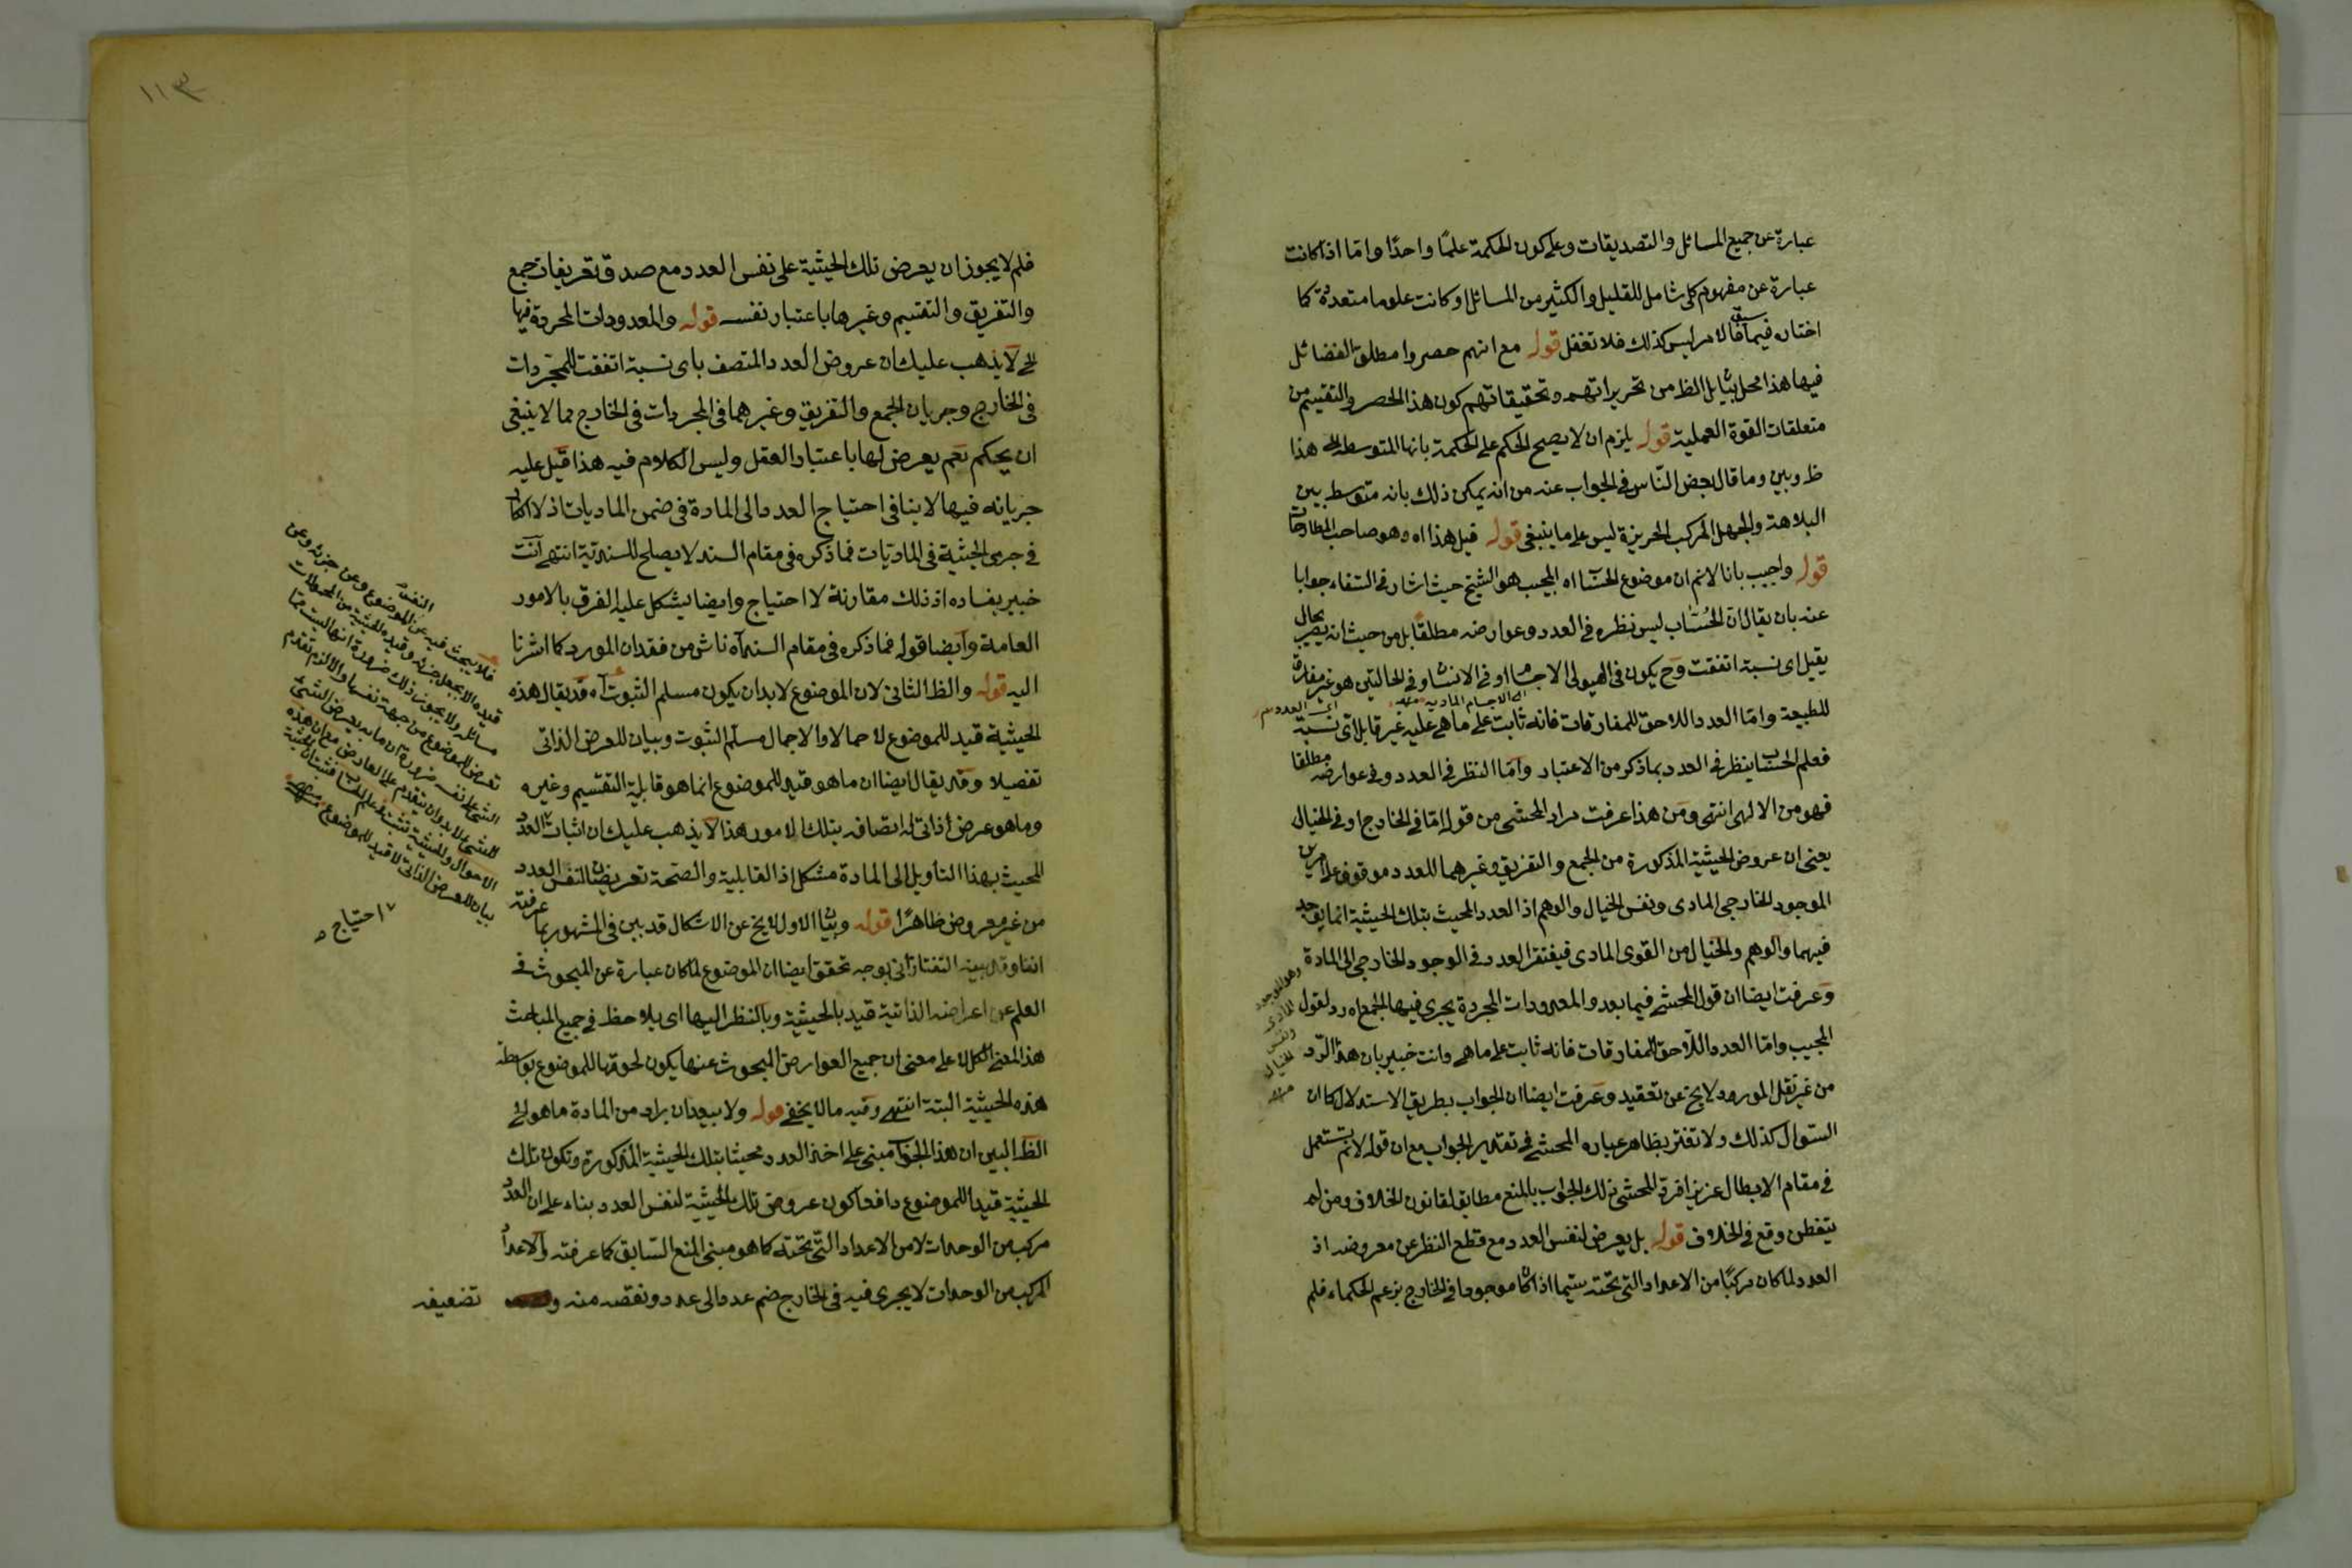 عبارة عن جميع المسائل والتصديقات وعلى كون الحكمة علمًا واحدًا واما اذا كانت
عبارة عن مفهوم كلى شامل للقليل والكثير من المسائل او كانت علوما متعددة كما
اختاره فيما سبق فالامر ليس كذلك فلا تغفل قوله مع انهم حصروا مطلق الفضائل
فيها هذا محل تأمل الظ من تحريراتهم وتحقيقاتهم كون هذا الحصر والتقسيم من
متعلقات القوة العملية قوله يلزم ان لا يصح الحكم على الحكمة بانها المتوسطة الخ هذا
ظ وبين وما قال بعض النّاس فى الجواب عنه من انه يمكن ذلك بانه متوسط بين
البلاهة والجهل المركب الجربزة ليس على ما ينبغى قوله قيل هذا اه وهو صاحب المطارحات
قوله واجيب بانا لانم ان موضوع الحساب اه المجيب هو الشيخ حيث اشار فى الشفاء جوابا
عنه بان يقال ان الحُسّاب ليس نظره فى العدد وعوارضه مطلقًا بل من حيث انه يصير بحال
يقبل اى نسبة اتفقت وح يكون فى الهيولى الاجسام او فى الانسان وفى الحالتين هو غير مفارق
اى الاجسام المادية منه
اى العدد
للطبيعة وامّا العدد اللاحق للمفارقات فانه ثابت على ما هى عليه غير قابل اى نسبة
فعلم الحساب ينظر فى العدد بما ذكر من الاعتبار وامّا النظر فى العدد وفى عوارضه مطلقا
فهو من الالهى انتهى ومن هذا عرفت مراد المحشى من قوله امّا فى الخارج او فى الخيال
يعنى ان عروض الحيثية المذكورة من الجمع والتفريق وغيرهما للعدد موقوف على امرين
الموجود الخارجى المادى ونفس الخيال والوهم اذ العدد المحيث بتلك الحيثية انما يوجد
فيهما والوهم والخيال من القوى المادى فيفتقر العدد فى الوجود الخارجى الى المادة
وهو الموجود
المادى
ونفس
الخيال
منه
وعرفت ايضا ان قول المحشى فيما بعد والمعدودات المجردة يجرى فيها الجمع اه رد لقول
المجيب وامّا العدد اللاحق للمفارقات فانه ثابت على ما هى وانت خبير بان هذا الرد
من غير نقل المورد لا يخ عن تعقيد وعرفت ايضا ان الجواب بطريق الاستدلال كما ان
السؤال كذلك ولا تغتر بظاهر عباره المحشى فى تقرير الجواب مع ان قوله لانم يستعمل
فى مقام الابطال عزيز افرد المحشى ذلك الجواب بالمنع مطابق لقانون الخلاف ومن لم
يتفطن وقع فى الخلاف قوله بل يعرض لنفس العدد مع قطع النظر عن معروضه اذ
العدد لما كان مركبًا من الاعداد التى تحته سيّما اذا كان موجودا فى الخارج بزعم الحكماء فلم
١١٣
فلم لا يجوز ان يعرض تلك الحيثية على نفس العدد مع صدق تعريفات جمع
والتفريق والتقسيم وغيرها باعتبار نفسه قوله والمعدودات المجردة فيها
الخ لا يذهب عليك ان عروض العدد المتصف باى نسبة اتفقت للمجردات
فى الخارج وجريان الجمع والتفريق وغيرهما فى المجردات فى الخارج مما لا ينبغى
ان يحكم نعم يعرض لها باعتبار العقل وليس الكلام فيه هذا قيل عليه
جريانه فيها لا ينافى احتياج العدد الى المادة فى ضمن الماديات اذ لا كلام
فى جرى الحيثية فى الماديّات فما ذكره فى مقام السند لا يصلح للسندية انتهى انت
خبير بفساده اذ ذلك مقارنة لا احتياج وايضا يشكل عليه الفرق بالامور
العامة وايضا قوله فما ذكره فى مقام السند اه ناش من فقدان المورد كما اشرنا
اليه قوله والظ الثانى لان الموضوع لا بد ان يكون مسلم الثبوت اه قد يقال هذه
الحيثية قيد للموضوع اجمالا والاجمال مسلم الثبوت وبيان للعرض الذاتى
تفصيلا وقد يقال ايضا ان ما هو قيد للموضوع انما هو قابلية التقسيم وغيره
وما هو عرض ذاتى له اتصافه بتلك الامور هذا لا يذهب عليك ان اثبات العدد
المحيث بهذا التأويل الى المادة مشكل اذ القابلية والصحة تعرضان لنفس العدد
من غير معروض ظاهرًا قوله وبيان الاول لا يخ عن الاشكال قد بين فى المشهور بما عرفته
انفا وقد بينه التفتازانى بوجه تحقق ايضا ان الموضوع لما كان عبارة عن المبحوث فى
العلم عن اعراضه الذاتية قيد بالحيثية وبالنظر اليها اى يلاحظ فى جميع المباحث
هذا المعنى الكلى لا على معنى ان جميع العوارض المبحوث عنها يكون لحوقها للموضوع بواسطة
هذه الحيثية البتة انتهى وفيه ما لا يخفى قوله ولا يبعد ان يراد من المادة ما هو الخ
الظ البين ان هذا الجواب مبنى على اخذ العدد محيثا بتلك الحيثية المذكورة وتكون تلك
الحيثية قيدا للموضوع دافعا كون عروض تلك الحيثية لنفس العدد بناء على ان العدد
مركب من الوحدات لا من الاعداد التى تحته كما هو مبنى المنع السّابق كما عرفته والاعداد
المركب من الوحدات لا يجرى فيه فى الخارج ضم عدد الى عدد ونقصه منه و
تضعيفه
فلا يبحث فيه عن الموضوع وعن جزئه وعن
قيده الا بجعل جزئه وقيده للحيثية من المحمولات
مسائله ولا يجوز ذلك ضرورة انها ليست مما
تعرض للموضوع من جهة نفسها والا لزم تقدم
الشئ على نفسه ضرورة ان ما به يعرض الشئ
للشئ لا بد وان يتقدم على العارض مع ان هذه
الاحوال والحيثية تثبت فى علم الحساب فثبت ان الحيثية
بيان للعرض الذاتى لا قيد للموضوع منه
احتياج